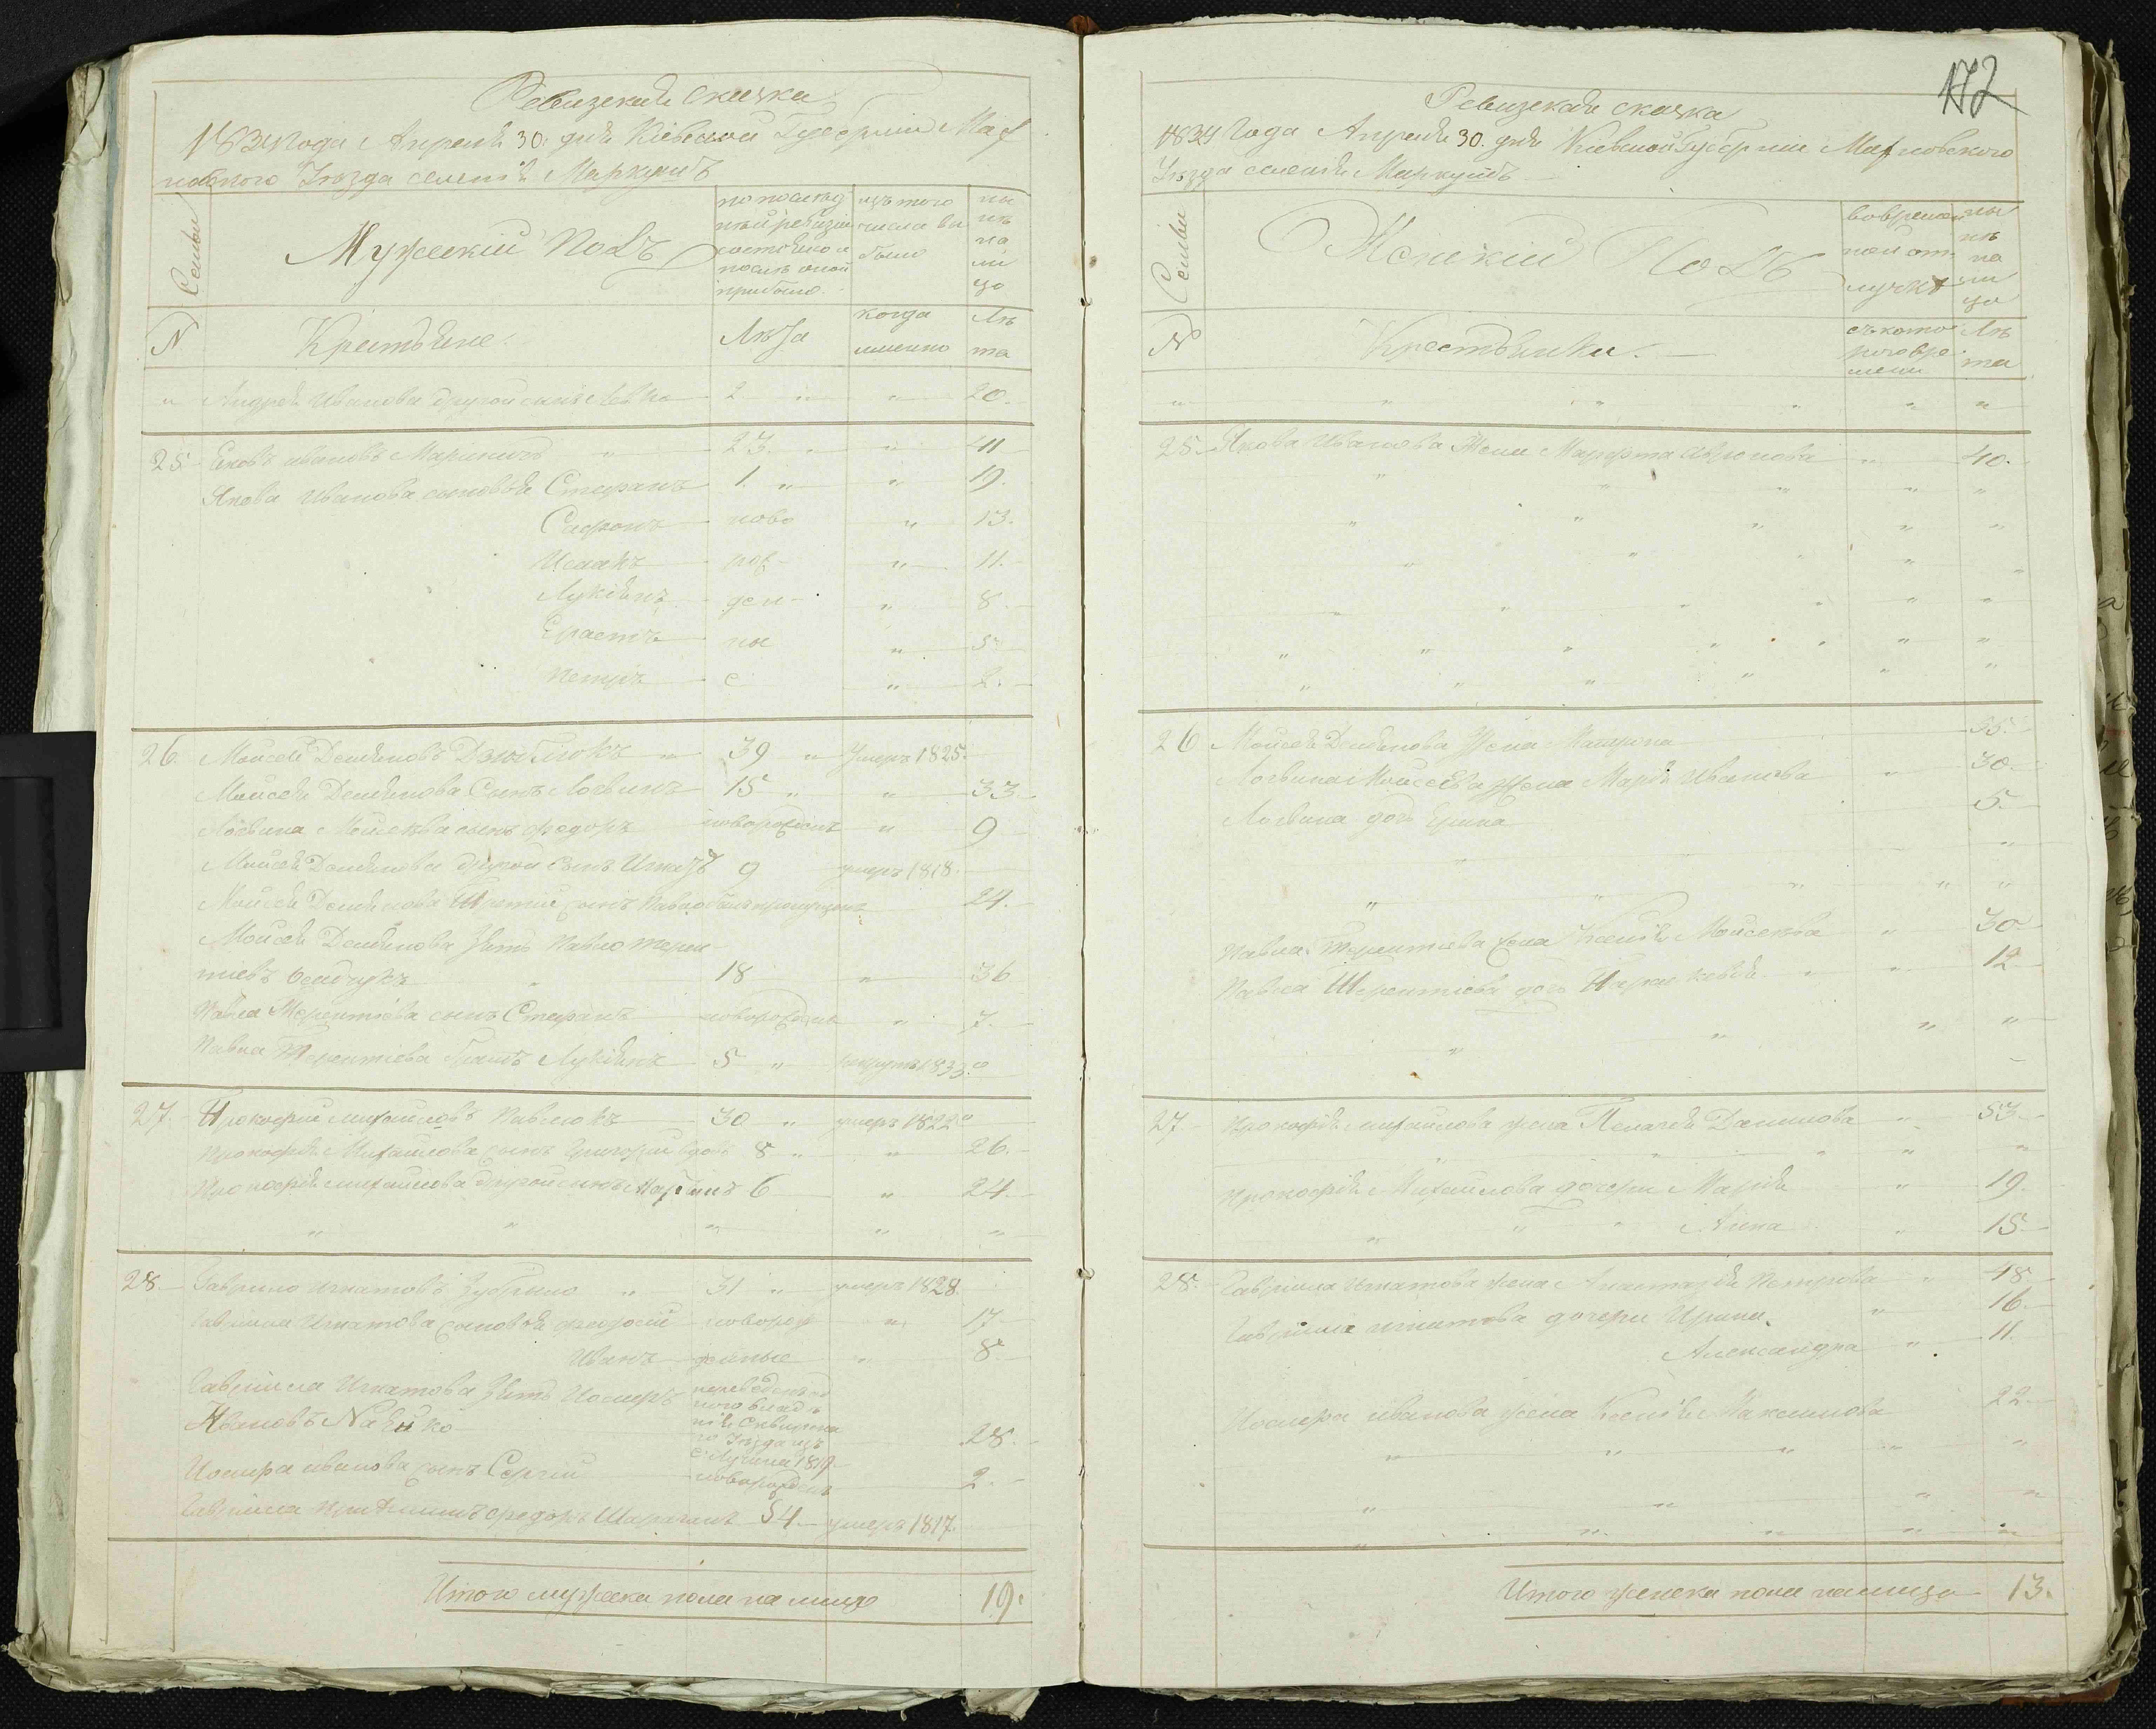 Ревизская сказка
1834 года Апреля 30. дня Киевской Губернии Мах
новского Уезда селения Маркушъ
Семьи
Мужескій Полъ
по послед
ней ревизіи
состояло и
после оной
прибыло.
изъ того
числа вы
было
ны
не
на
ли
цо
N
Крестьяне.
Лета
когда
именно
Ле
та
" Андрея Иванова другой сынъ Левко 2 " " 20.
25 Яковъ ивановъ Мариничъ " 23. " " 41
Якова Иванова сыновья Стефанъ 1. " " 19.
Сафонъ ново " 13.
Исаакъ рож " 11.
Лукіянъ ден " 8.
Ерастъ ны " 5
Петръ е " 2.
26. Мойсей Демяновъ Дзюблюкъ " 39 " умеръ 1825.
Мойсея Демянова Сынъ Логвинъ 15 " " 33.
Логвина Мойсеева сынъ федоръ новорожденъ " 9
Мойсея Демянова другой сынъ Игнатъ 9 умеръ 1818.
Мойсея Демянова Третій сынъ Павло былъ пропущенъ 24.
Мойсея Демянова Зять Павло Терен
тіевъ 18 " 36
Павла Терентіева сынъ Стефанъ новорожденъ " 7.
Павла Терентіева братъ Лукіянъ 5 " рекрутъ 1833.
27. Прокофій михайловъ Павлюкъ 30 " умеръ 1822
Прокофія Михайлова сынъ Григорій вдовъ 8 " " 26.
Прокофія михайлова другой сынъ Мартинъ 6 " 24.
" " " " "
28. Гаврило игнатовъ Зубрило " 31 " умеръ 1828.
Гаврила Игнатова сыновья феодосій новорож " 17.
Иванъ денные " 8.
Гаврила Игнатова Зять Иосифъ
Ивановъ 28.
Иосифа иванова сынъ Сергій новорожденъ 2.
Гаврила федоръ 54. умеръ 1817.
Итого мужеска пола на лице 19.
172
Ревизская сказка
1834 Года Апреля 30. дня Киевской Губернии Махновского
Уезда селения Маркушъ
Семьи
Женскій Полъ
во времен
ной от
лучке
ны
не
на
ли
цо
N
Крестьянки.
съ кото
рого вре
мени
Ле
та
" " " " " "
25. Якова Иванова Жена Марфта " 40.
26 Мойсея Демянова Жена Матрона 55.
Логвина Мойсеева жена Марія Иванова " 30.
Логвина дочь Ерина 5.
Павла Терентіева жена Ксенія Мойсеева " 30
Павла Терентіева дочь " 12
27. Прокофія михайлова жена Пелагея Данилова " 53.
Прокофія Михайлова дочери Марія " 19.
" " " Анна " 15.
28. Гаврила Игнатова жена Анастазія Петрова " 48
Гаврила игнатова дочери Ирина. " 16.
Александра " 11.
Иосифа иванова жена Ксенія Максимова 22.
Итого женска пола налице 13.